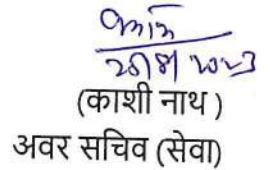 (काशी नाथ )
अवर सचिव (सेवा)